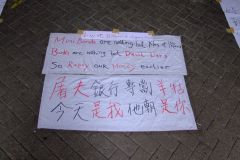 Mini Bonds are nothing but of
Banks are nothing but
So Repay our Money
屠夫銀行專劏羊牯
今天是我他朝是你